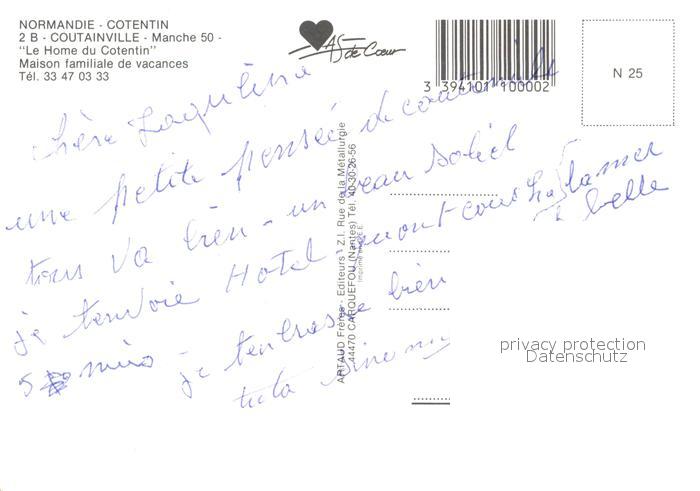 NORMANDIE - COTENTIN
2 B - COUTAINVILLE - Manche 50 -
"Le Home du Cotentin"
Maison familiale de vacances
Tél. 33 47 03 33
AS de Cœur
3 394101 100002
N 25
chère
une petite pensée de coutainville
tous va bien - un beau soleil
la mer
je tenvoie Hotel
belle
5 je tembrasse bien
tata
ARTAUD Frères - Editeurs - Z.I. Rue de la Métallurgie
44470 CARQUEFOU (Nantes) Tél. 40-30-26-56
privacy protection
Datenschutz